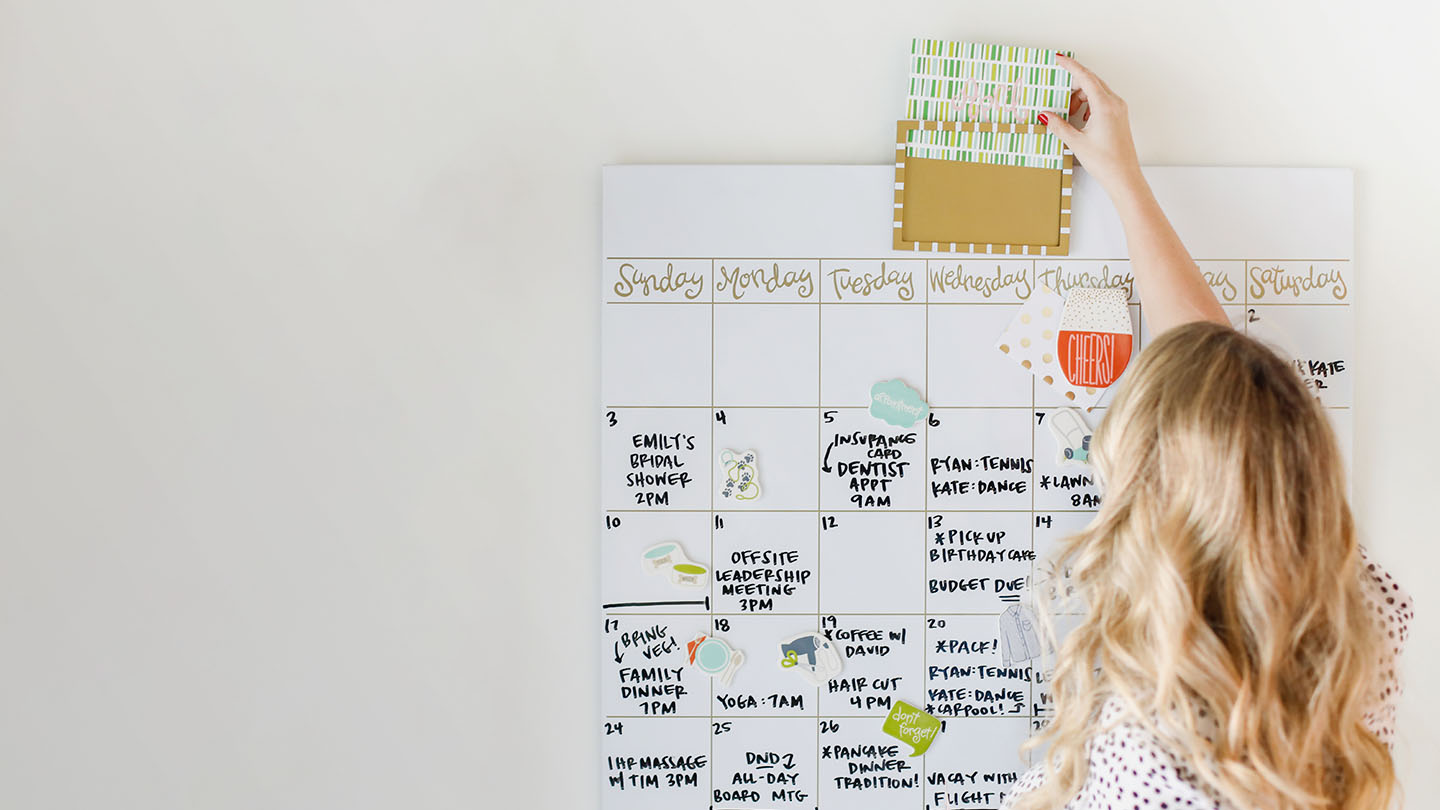 Sunday Monday Tuesday Wednesday Thursday Saturday
CHEERS!
2
KATE
3
EMILY'S
BRIDAL
SHOWER
2PM
4
5
appointment
INSURANCE
CARD
DENTIST
APPT
9AM
6
RYAN: TENNIS
KATE: DANCE
7
*LAWN
8AM
10
11
OFFSITE
LEADERSHIP
MEETING
3PM
12
13
*PICK UP
BIRTHDAY CAKE
BUDGET DUE!
14
17
BRING
VEG!
FAMILY
DINNER
7PM
18
YOGA: 7AM
19
*COFFEE W/
DAVID
HAIR CUT
4PM
20
*PACK!
RYAN: TENNIS
KATE: DANCE
*CARPOOL!
24
1 HR MASSAGE
W/ TIM 3PM
25
DND
ALL-DAY
BOARD MTG
26
*PANCAKE
DINNER
TRADITION!
don't
forget!
VACAY WITH
FLIGHT